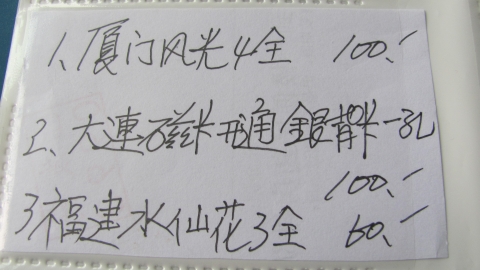 1、厦门风光4全 100.-
2、大連磁卡通銀背卡一孔
100.-
3福建水仙花3全 60.-